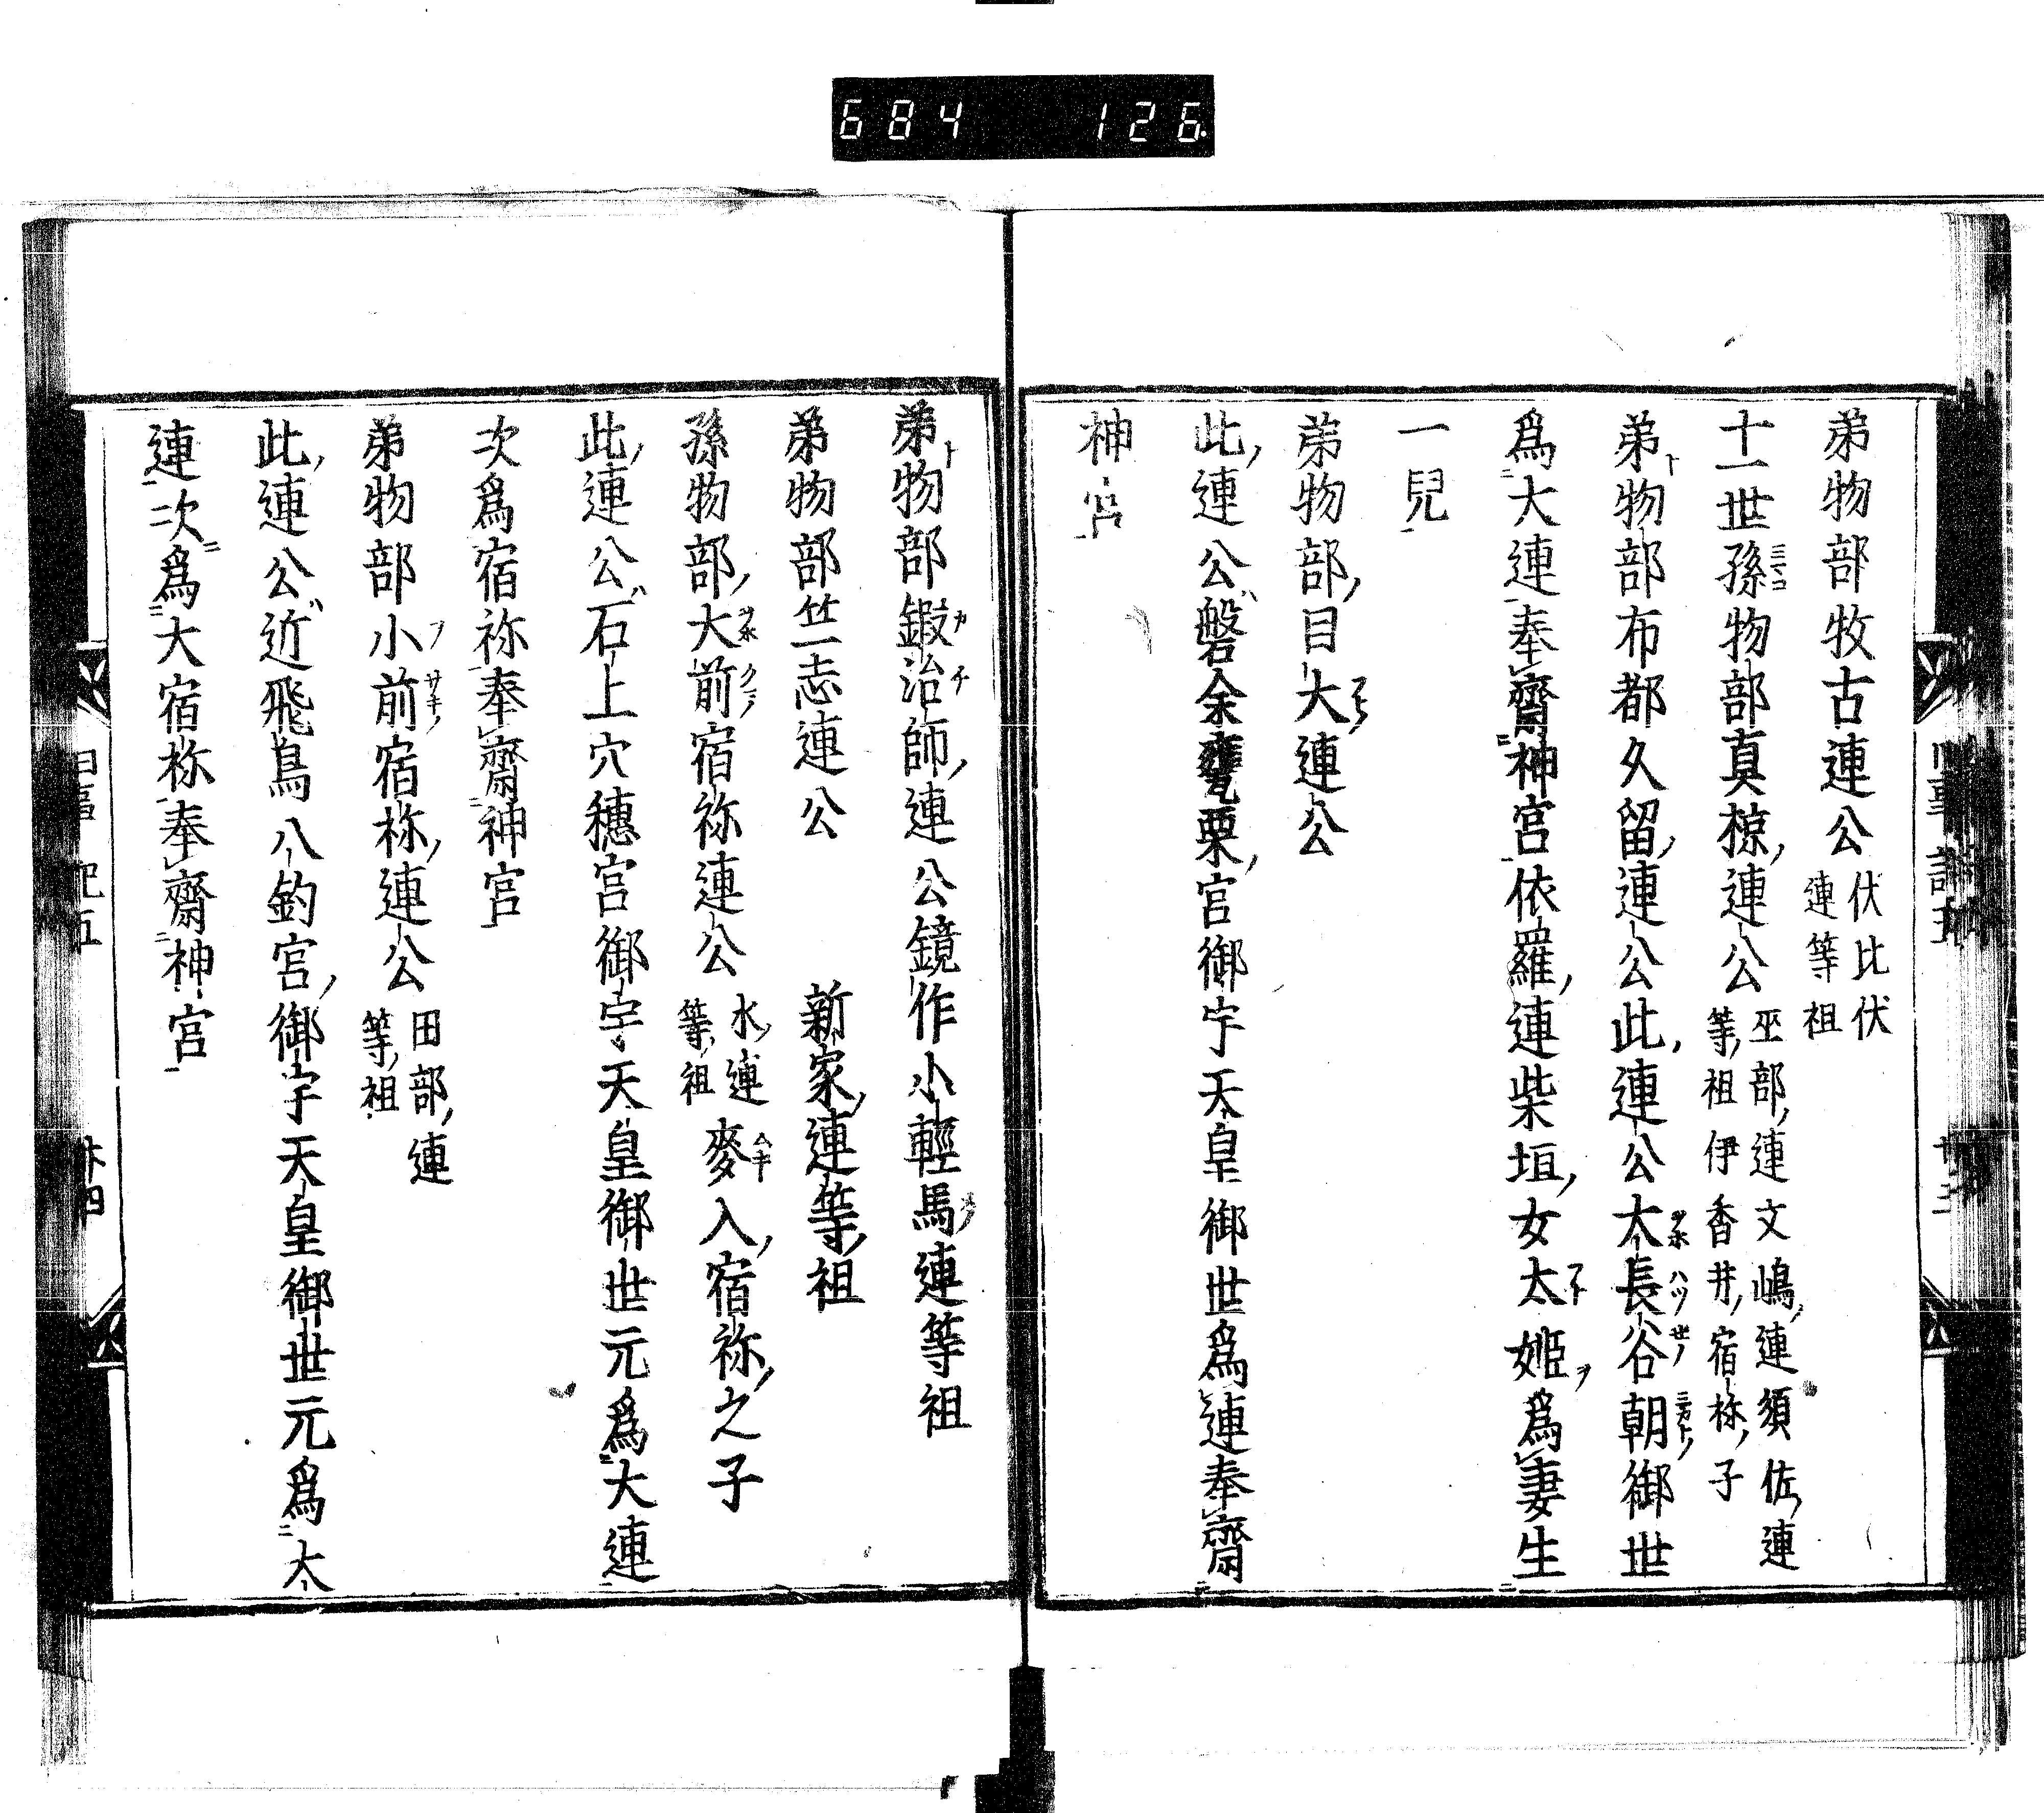 684 126
弟物部牧古連公 伏比伏
連等祖
十一世孫物部真椋連公 巫部連文嶋連須佐連
等祖伊香井宿祢子
弟物部布都久留連公此連公太長谷朝御世
爲大連奉齋神宮依羅連柴垣女太姬爲妻生
一兒
弟物部目大連公
此連公磐余甕栗宮御宇天皇御世爲連奉齋
神宮
弟物部鍛治師連公鏡作小輕馬連等祖
弟物部竺志連公 新家連等祖
孫物部大前宿祢連公 水連
等祖 麥入宿祢之子
此連公石上穴穗宮御宇天皇御世元爲大連
次爲宿祢奉齋神宮
弟物部小前宿祢連公 田部連
等祖
此連公近飛鳥八釣宮御宇天皇御世元爲大
連次爲大宿祢奉齋神宮